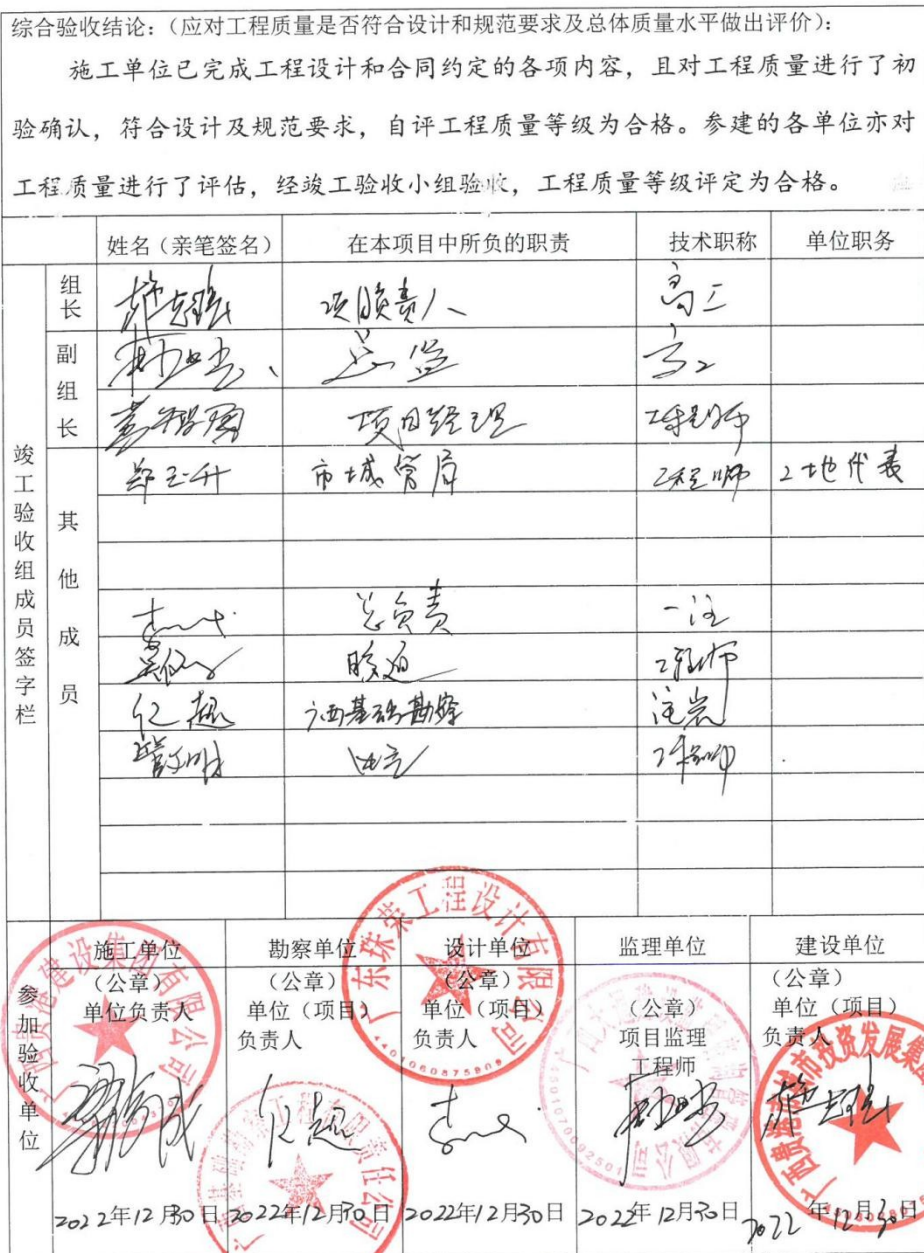 综合验收结论:(应对工程质量是否符合设计和规范要求及总体质量水平做出评价):
施工单位已完成工程设计和合同约定的各项内容,且对工程质量进行了初
验确认,符合设计及规范要求,自评工程质量等级为合格。参建的各单位亦对
工程质量进行了评估,经竣工验收小组验收,工程质量等级评定为合格。
姓名(亲笔签名) 在本项目中所负的职责 技术职称 单位职务
竣工验收组成员签字栏
组长 项目负责人 高工
副组长 总监 高工
项目经理 工程师
其他成员
郑玉升 市城管局 工程师 工地代表
总负责 一注
工程师
仁超 广西基础勘察 注岩
工程师
参加验收单位
施工单位 勘察单位 设计单位 监理单位 建设单位
(公章) (公章) (公章) (公章) (公章)
单位负责人 单位(项目)负责人 单位(项目)负责人 项目监理工程师 单位(项目)负责人
广东珠荣工程设计有限公司
4401060875909
仁超
2022年12月30日 2022年12月30日 2022年12月30日 2022年12月30日 2022年12月30日